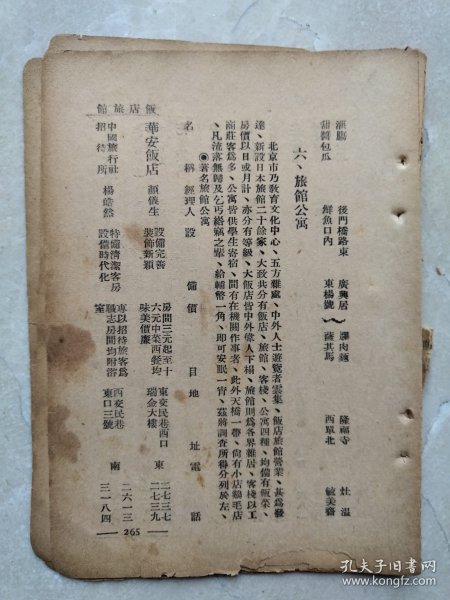 灌腸　後門橋路東　廣興居
甜醬包瓜　鮮魚口內　東楊號
臊肉麵　隆福寺　灶溫
薩其馬　西單北　毓美齋
六、旅館公寓
北京市乃教育文化中心、五方雜處、中外人士遊覽者雲集、飯店旅館營業、甚爲發
達、新設日本旅館二十餘家、大致共分有飯店、旅館、客棧、公寓四種、均備有飯菜、
房價以日或月計、亦分有等級、大飯店皆中外偉人下榻、旅館則爲各界雜居、客棧以工
商莊客爲多、公寓皆供學生寄宿、間有在機關作事者、此外天橋一帶、尙有小店鷄毛店
、凡流落無歸及乞丐絡竊之輩、給輔幣一角、即可安眠一宵、茲將調查所得分列於左、
◉著名旅館公寓
名稱　經理人　設備　價目　地址　電話
華安飯店　顏儀生　設備完善裝飾新穎　房間三元起至十六元中菜西餐均味美價廉　東交民巷西口瑞金大樓　東　二七三七　二七三九
中國旅行社招待所　楊皓然　特備清潔客房設備時代化　專以招待旅客爲職志房間均附浴室　西交民巷東口三號　南　二六一三　三一八四
飯店旅館
265
孔夫子旧书网
www.kongfz.com